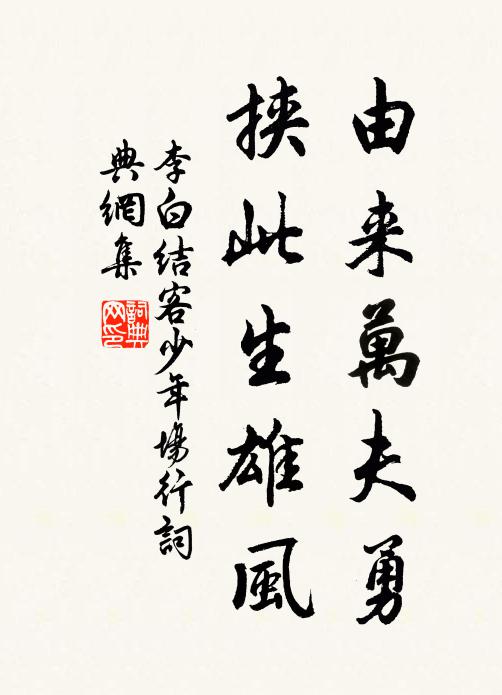 由来萬夫勇
挾此生雄風
李白結客少年場行詞
典網集
詞典
网印